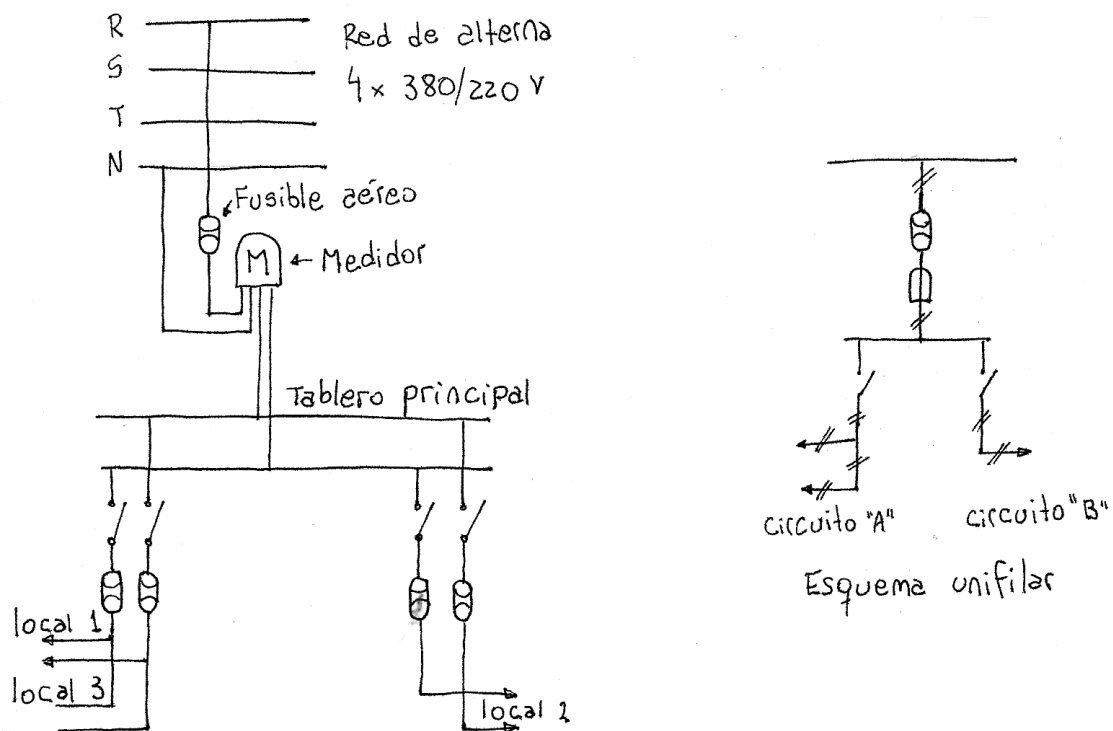 R
S
T
N
Red de alterna
4 x 380/220 V
Fusible aéreo
M
Medidor
Tablero principal
local 1
local 3
local 2
circuito "A"
circuito "B"
Esquema unifilar